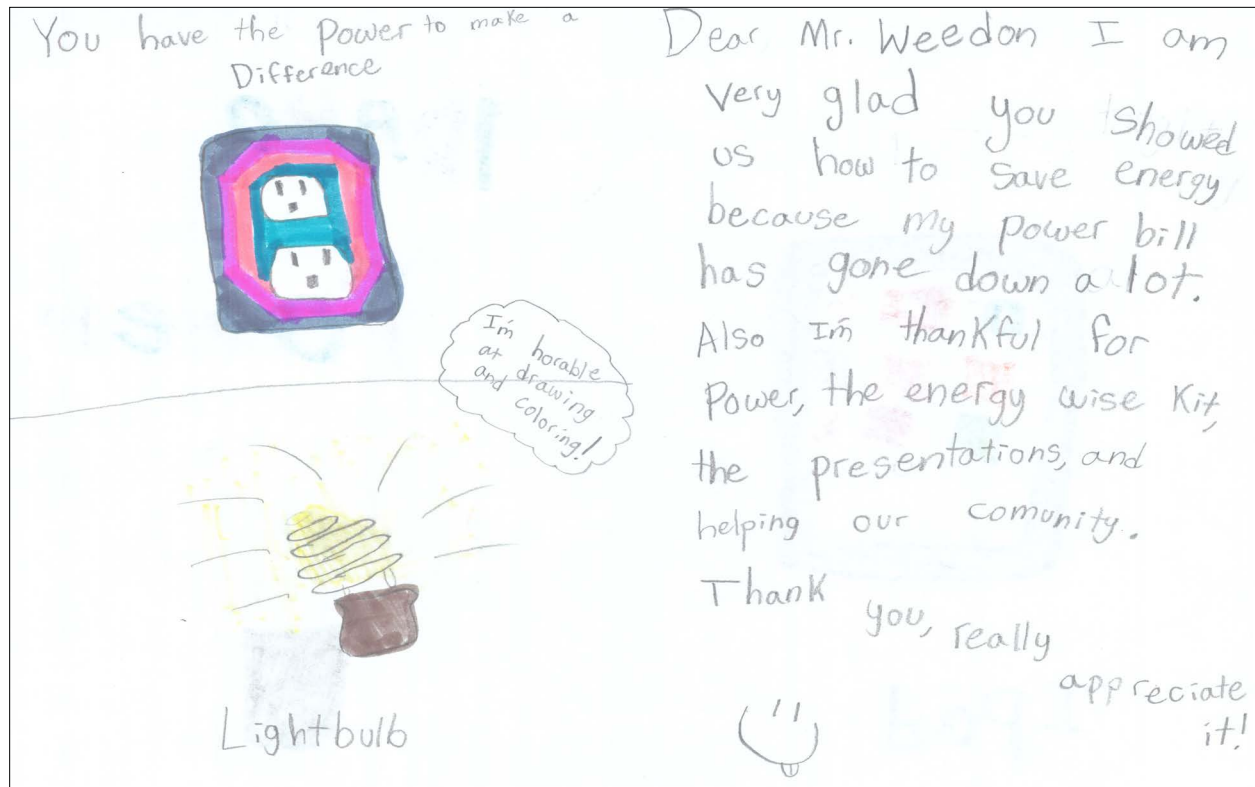 You have the Power to make a
Difference
I'm horable
at drawing
and coloring!
Lightbulb
Dear Mr. Weedon I am
very glad you showed
us how to save energy
because my power bill
has gone down a lot.
Also I'm thankful for
Power, the energy wise kit,
the presentations, and
helping our comunity.
Thank you, really
appreciate
it!